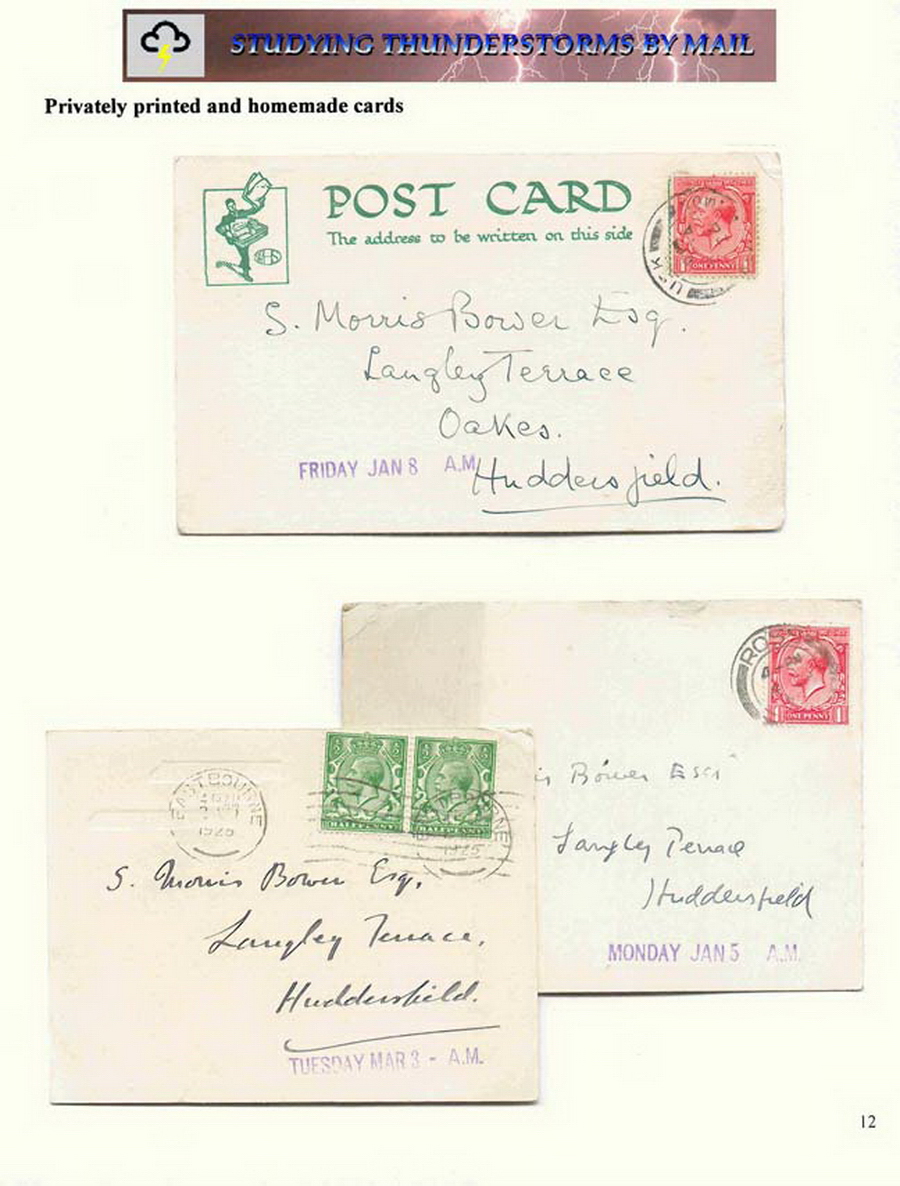 STUDYING THUNDERSTORMS BY MAIL
Privately printed and homemade cards
POST CARD
The address to be written on this side
ONE PENNY
USK
S. Morris Bower Esq.
Langley Terrace
Oakes.
FRIDAY JAN 8 A.M.
Huddersfield.
ONE PENNY
is Bower Esq
Langley Terrace
Huddersfield
MONDAY JAN 5 A.M.
EASTBOURNE
HALFPENNY
HALFPENNY
1925
S. Morris Bower Esq.
Langley Terrace,
Huddersfield.
TUESDAY MAR 3 - A.M.
12